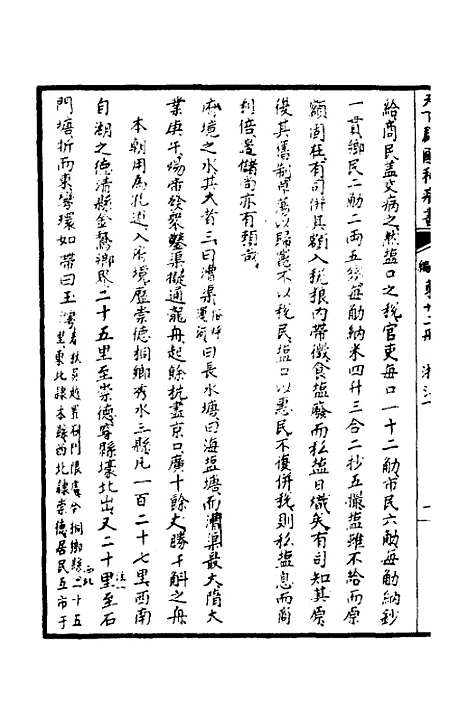 天下郡國利病書 編 第十二冊 浙江 一
給商民蓋交病之然盐口之稅官吏每口一十二觔市民六觔每觔納鈔
一貫鄉民二觔二兩五錢每觔納米四升三合二抄五撮盐雖不給而原
額固在有司併其額入稅粮内帶徵食盐廢而私盐日熾矣有司知其原
復其舊制帶萬以歸竈不以稅民盐口以惠民不復併稅則私盐息而商
利倍邊儲尚亦有賴哉
府境之水其大者三曰漕渠俗呼運河曰長水塘曰海盐塘而漕渠最大隋大
業庚午場帝發衆鑿渠擬通龍舟起餘杭盡京口廣十餘丈勝千斛之舟
本朝用為孔道入府境歷崇德桐鄉秀水三縣凡一百二十七里西南
自湖之德清縣金鵞鄉界二十五里至崇德穿縣壕北出又二十里至石
門塘折而東彎環如帶曰玉灣春秋吳越界石門限處今桐鄉縣西北二十五里東北隷本縣西北隷崇德居民互市于